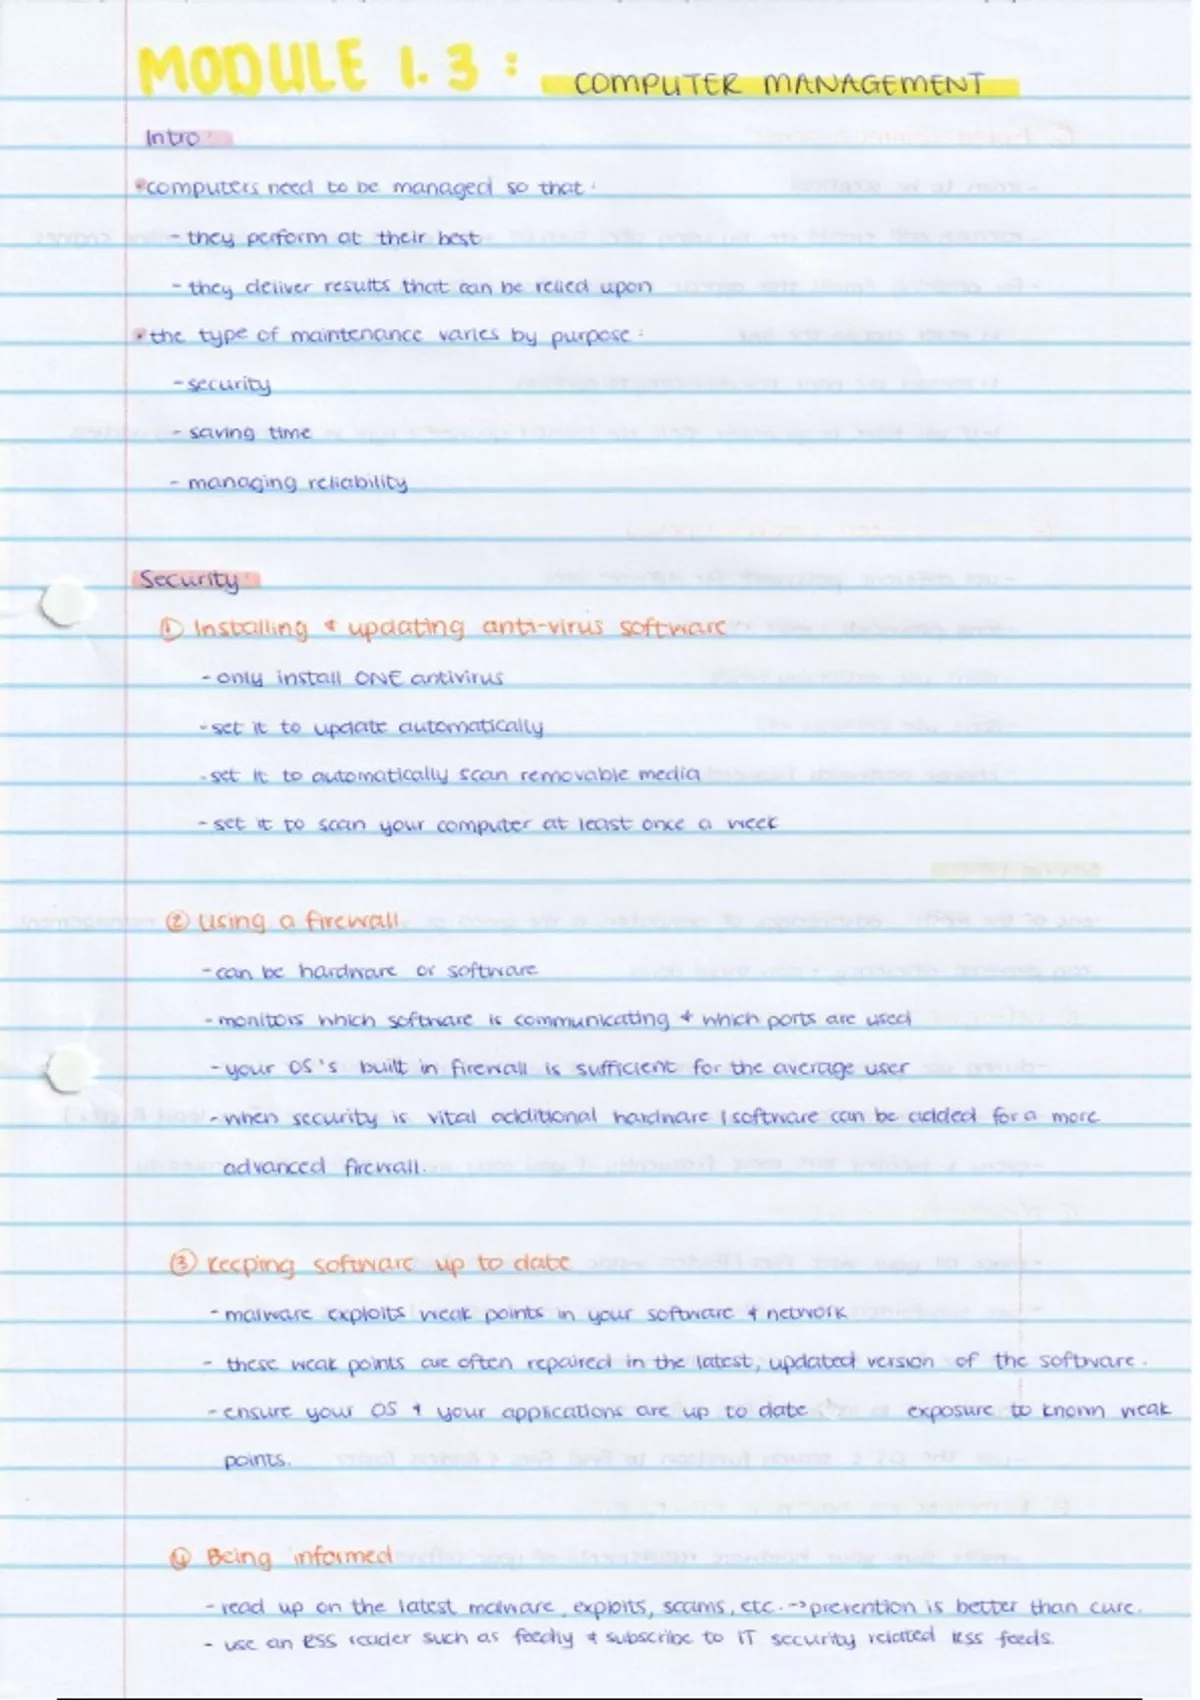 MODULE 1.3 : COMPUTER MANAGEMENT
Intro:
•computers need to be managed so that:
- they perform at their best
- they deliver results that can be relied upon
•the type of maintenance varies by purpose:
- security
- saving time
- managing reliability
Security:
① Installing & updating anti-virus software
- only install ONE antivirus
- set it to update automatically
- set it to automatically scan removable media
- set it to scan your computer at least once a week
② Using a firewall
- can be hardware or software
- monitors which software is communicating & which ports are used
- your OS's built in firewall is sufficient for the average user
- when security is vital additional hardware / software can be added for a more
advanced firewall.
③ Keeping software up to date
- malware exploits weak points in your software & network
- these weak points are often repaired in the latest, updated version of the software.
- ensure your OS & your applications are up to date exposure to known weak
points.
④ Being informed
- read up on the latest malware, exploits, scams, etc. -> prevention is better than cure.
- use an RSS reader such as feedly & subscribe to IT security related RSS feeds.